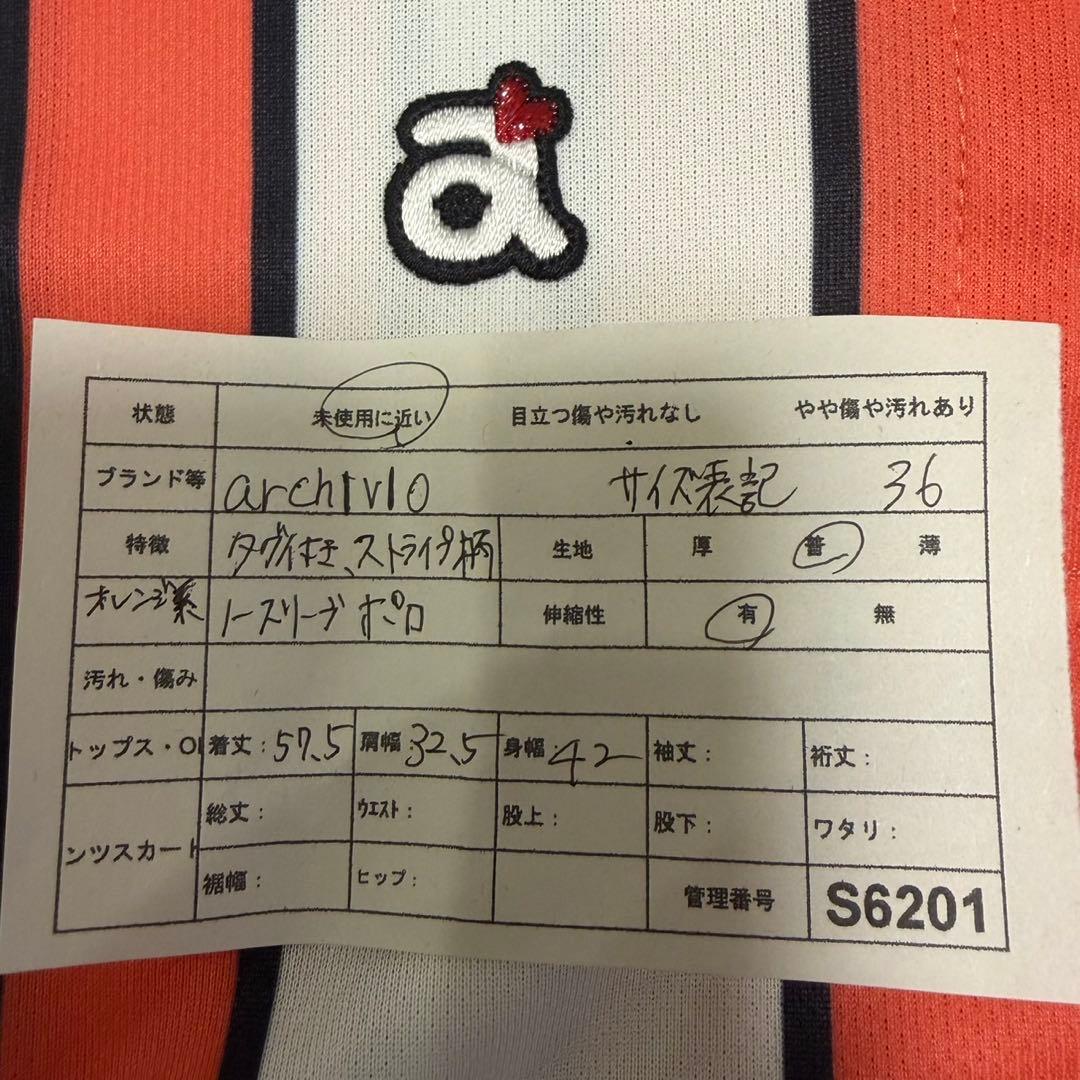 a
状態 未使用に近い 目立つ傷や汚れなし やや傷や汚れあり
ブランド等 archivio サイズ表記 36
特徴 タグ付き、ストライプ柄 生地 厚 普 薄
オレンジ系 ノースリーブ ポロ 伸縮性 有 無
汚れ・傷み
トップス・OI 着丈: 57.5 肩幅: 32.5 身幅: 42 袖丈: 裄丈:
総丈: ウエスト: 股上: 股下: ワタリ:
ンツスカート
裾幅: ヒップ: 管理番号 S6201